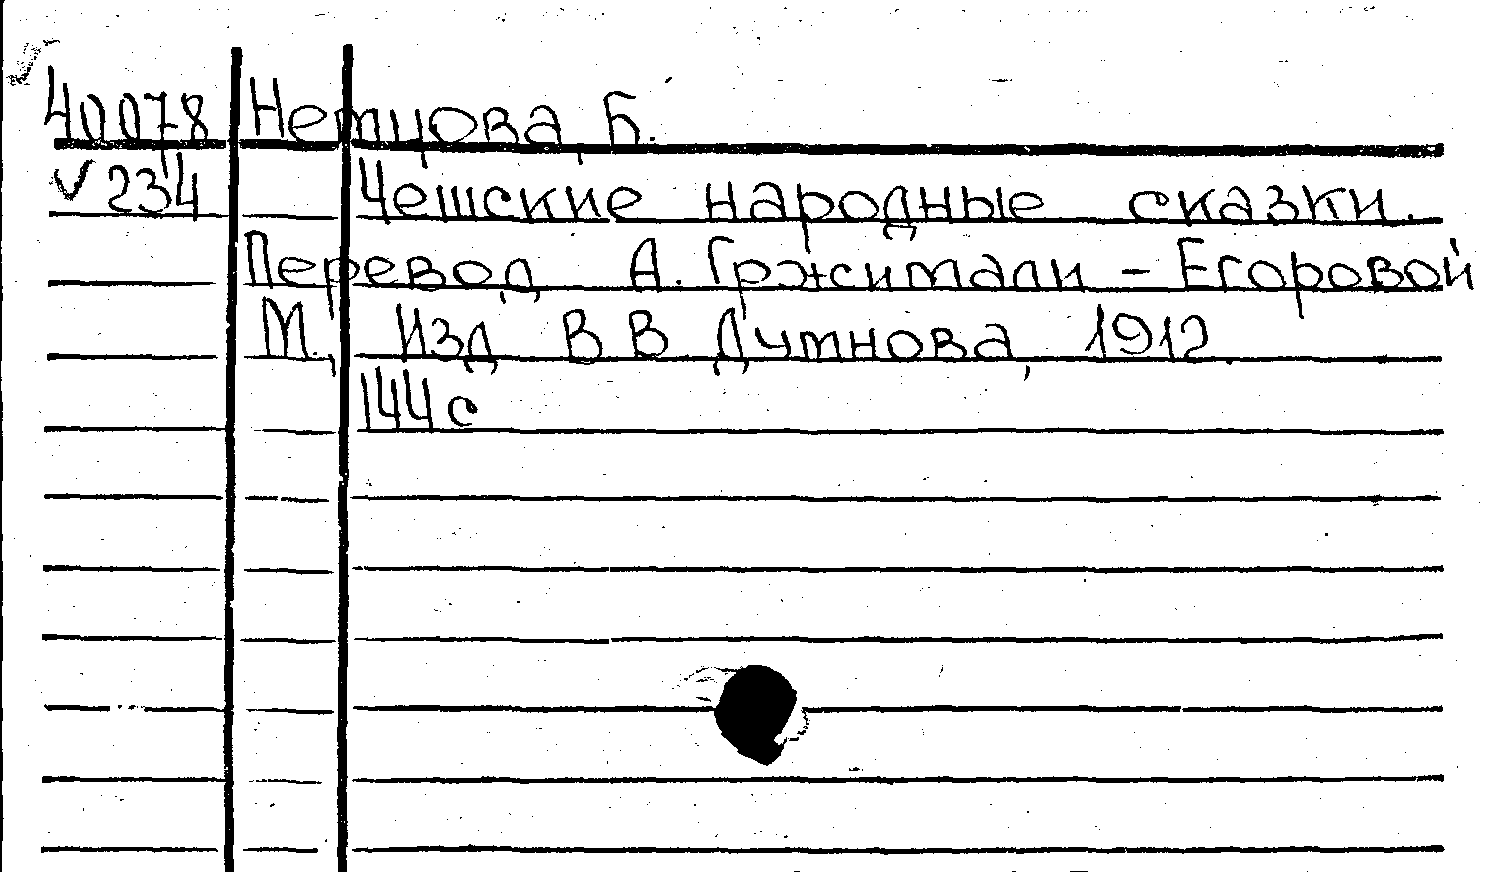 40078 Немцова, Б.
√234 Чешские народные сказки.
Перевод А. Грэжитали - Егоровой
М., Изд В В Думнова, 1912.
144 с